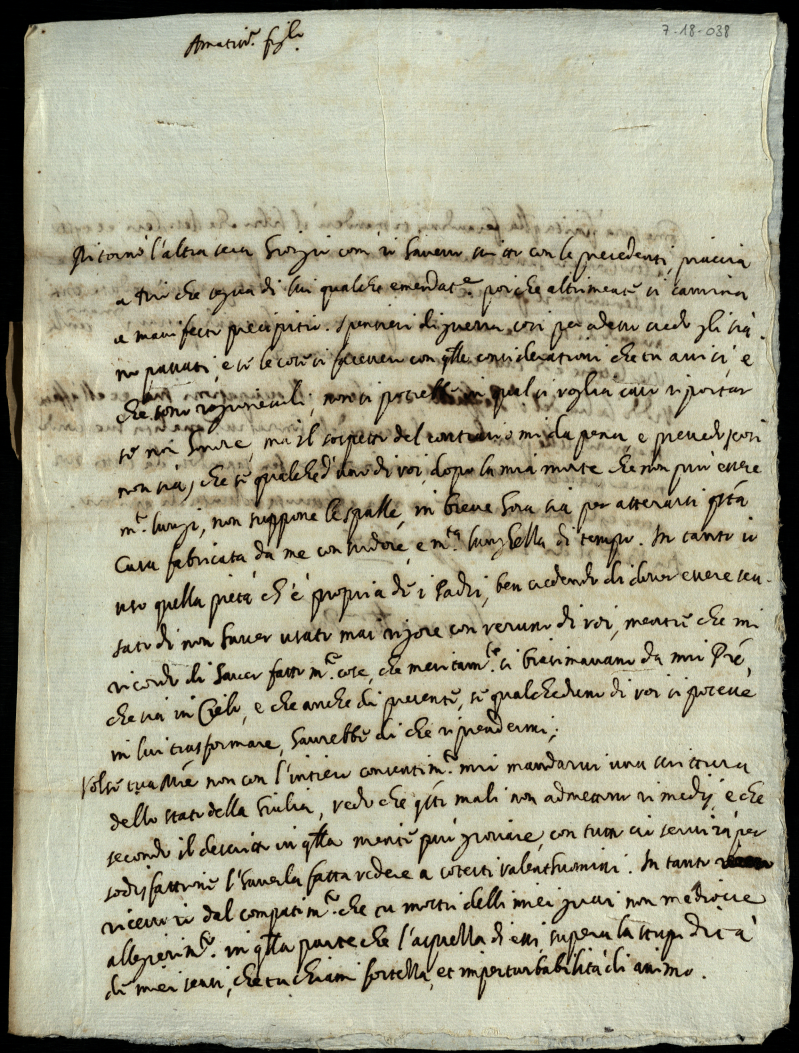 7-18-038
Amatiss.º figlo
Ritornò l'altra sera Giorgio com'io haverò scritto con le precedenti, piaccia
a Dio che segua di lui qualche emendat.e poiche altrimente si camina
a manifesto precipitio. I pensieri di guerra così per adesso credo gli sia
no passati, e se le cose si facessero con q.lle considerationi che tu avisi, e
che sono ragionevoli, non si potrebbe in qual si voglia caso riportar
se non honore, ma il sospetto del contrario mi da pena, e prevedo, (così
non sia) che se qualched'uno di voi, dopo la mia morte che non può essere
m.to lungi, non suppone le spalle, in breve hora sia per atterarsi q.sta
Casa fabricata da me con sudore, e m.ta lunghezza di tempo. In tanto io
uso quella pietà ch'è propria de i Padri, ben credendo di dover essere scu-
sato di non haver usato mai rigore con veruno di voi, mentre che mi
ricordo di haver fatto m.te cose, che meritam.te si biasimavano da mio Pre,
che sia in Cielo, e che anche di presente, se qualcheduno di voi si potesse
in lui trasformare, haverebbe di che riprendermi,
Volse tua Mre non con l'intiero consentim.to mio mandarvi una scrittura
dello stato della Giulia, vedo che q.sti mali non admettono rimedij, e che
secondo il descritto in q.lla niente può giovare, con tutto ciò servirà per
sodisfattione l'haverla fatta vedere a cotesti valenthuomini. In tanto
ricevo io dal compatim.to che tu mostri delli miei guai non mediocre
allegierim.to in q.lla parte che l'asprezza di essi supera la stupidità
de miei sensi, che tu chiami fortezza, et imperturbabilità di animo.